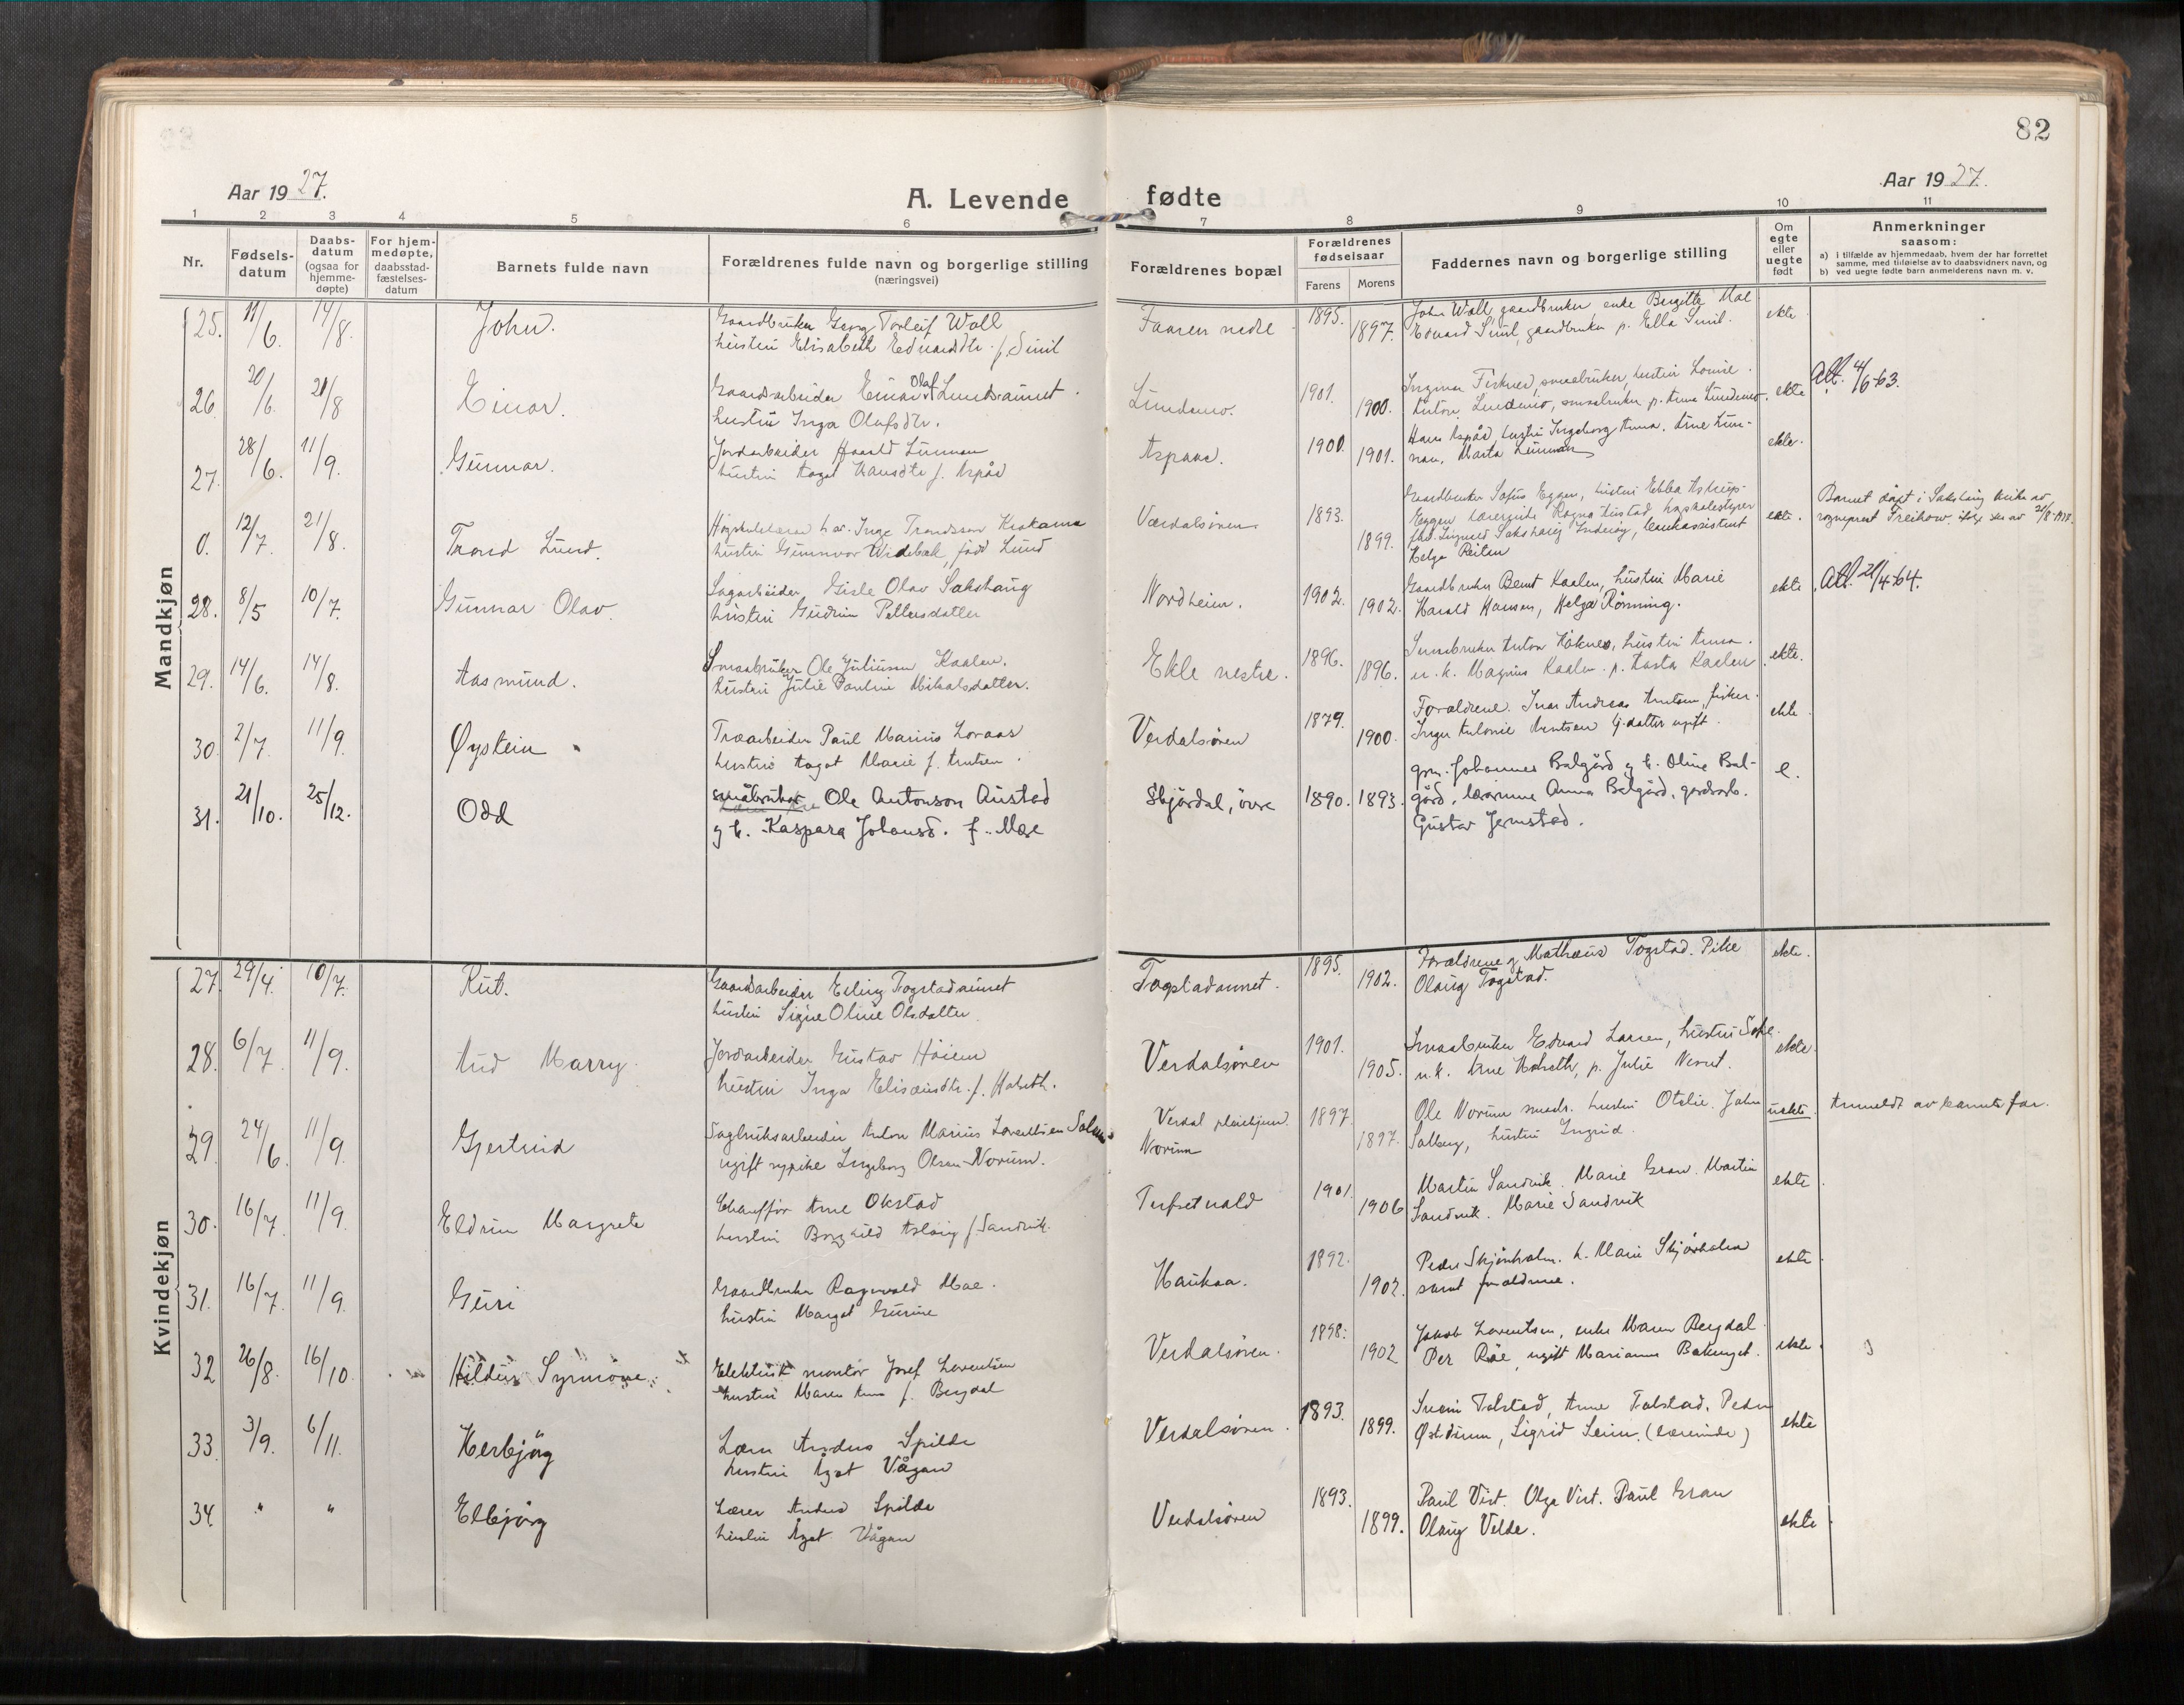 82
Aar 1927.
A. Levende fødte
Aar 1927.
1 2 3 4 5 6 7 8 9 10 11
Nr.
Fødsels-
datum
Daabs-
datum
(ogsaa for
hjemme-
døpte)
For hjem-
medøpte,
daabsstad-
fæstelses-
datum
Barnets fulde navn
Forældrenes fulde navn og borgerlige stilling
(næringsvei)
Forældrenes bopæl
Forældrenes
fødselsaar
Farens Morens
Faddernes navn og borgerlige stilling
Om
egte
eller
uegte
født
Anmerkninger
saasom:
a) i tilfælde av hjemmedaab, hvem der har forrettet
samme, med tilføielse av to daabsvidners navn, og
b) ved uegte fødte barn anmelderens navn m. v.
Mandkjøn
25. 11/6. 14/8. John.
Gaardbruker Georg Torleif Wall
hustru Elisabeth Edvardsdtr. f. Smil
Faaren nedre 1895. 1897.
John Wall gaardbruker enke Bergitte Mae
Edvard Smil, gaardbruker p. Ella Smil.
ekte
26. 20/6. 21/8 Einar.
Gaardsarbeider Einar Olaf Lundsaunet
hustru Inga Olafsdtr.
Lundemo. 1901. 1900.
smaabruker, hustru Lovise.
Anton Lindemo, smaabruker p. Anna Lindemo.
ekte
Att. 4/6-63.
27. 28/6. 11/9. Gunnar.
Jordarbeider Harald Lunnan
hustru Aagot Hansdtr f. Aspås
Aspaas. 1900. 1901.
Hans Aspås, hustru Ingeborg Anna. Arne Lun-
nan, Marta Lunnan
ekte.
0. 12/7. 21/8. Trond Lund.
Inge Trondsson Krokann
hustru Gunnvor Widebæk, født Lund
Værdalsøren. 1893. 1899.
Gaardbruker Sofus Eggen, hustru Ebba Astrup-
Eggen,
Helga Reitan
ekte.
Barnet døpt i Sakshaug kirke av
sogneprest
28. 8/5 10/7. Gunnar Olav.
Sagarbeider Gisle Olav Sakshaug
hustru Gudrun Pettersdatter
Nordheim. 1902. 1902.
Gaardbruker Bernt Kaalen, hustru Marie
Harald Hansen, Helga Rønning.
ekte
Att. 21/4-64.
29. 14/6. 14/8. Aasmund.
Smaabruker Ole Juliussen Kaalen.
hustru Julie Pauline Mikalsdatter.
Ekle nestre. 1896. 1896.
Smaabruker Anton Haknes, hustru Anna.
u. k. Magnus Kaalen. p. Aasta Kaalen
ekte.
30. 2/7. 11/9. Øystein
Træarbeider Paul Marius Loraas
hustru Aagot Marie f. Arntsen.
Verdalsøren 1879. 1900.
Forældrene. Ivar Andreas Arntsen, fisker.
Inger Antonie Arntsen G.datter ugift.
ekte
31. 21/10. 25/12. Odd
småbruker Ole Antonson Austad
g h. Kaspara Johansd. f. Mæe
Skjördal, övre 1890. 1893.
grn. Johannes Balgård g h. Oline Bal-
gård, lærerinne Anna Balgård, gardarb.
Gustav Jermstad.
e.
Kvindekjøn
27. 29/4. 10/7. Rut.
Gaardsarbeider Erling Togstadaunet
hustru Signe Oline Olsdatter
Togstadaunet. 1895. 1902.
Forældrene g Mathæus Togstad. Pike
Olaug Togstad.
ekte.
28. 6/7. 11/9. Aud Marry.
Jordarbeider Gustav Höien
hustru Inga Elisæusdtr. f. Halseth.
Verdalsøren 1901. 1905.
Smaabruker Edvard Larsen, hustru Sofie.
u.k. Arne Halseth, p. Julie Nesset.
ekte.
29. 24/6. 11/9. Gjertrud
Sagbruksarbeider Anton Marius Lorentsen
ugift sypike Ingeborg Olsen-Norum.
Verdal pleiehjem.
Norum 1897. 1897.
Ole Norum smedm. hustru Otelie. John
Salberg, hustru Ingrid.
uekte.
Anmeldt av barnets far.
30. 16/7. 11/9. Eldrun Margrete
Chauffør Arne Okstad
hustru Borghild Aslaug f. Sandvik.
1901. 1906
Martin Sandvik. Marie Gran. Martin
Sandvik. Marie Sandvik
ekte
31. 16/7. 11/9. Guri
Gaardbruker Ragnvald Mae.
hustru Margot Gurine
Haukaa. 1892. 1902.
Peder Skjørholm. h. Marie Skjørholm
samt forældrene.
ekte
32 26/8. 16/10. Hildur Synnöve
Elektrisk montör Josef Lorentsen
hustru Maren Anna f. Bergdal
Verdalsøren. 1898. 1902
Jakob Lorentsen, enke Maren Bergdal.
Per Röe, ugift Marianne
ekte.
33. 3/9. 6/11. Herbjörg
Lærer Anders Spilde
hustru Agot Vågan
Verdalsøren. 1893. 1899.
Tolstad, Anne Tolstad, Peder
Sigrid Seim. (lærerinde)
ekte
34. " " Elbjörg
Lærer Anders Spilde
hustru Agot Vågan
Verdalsøren 1893. 1899.
Paul Vist. Olga Vist. Paul Gran
Olaug Velde.
ekte.